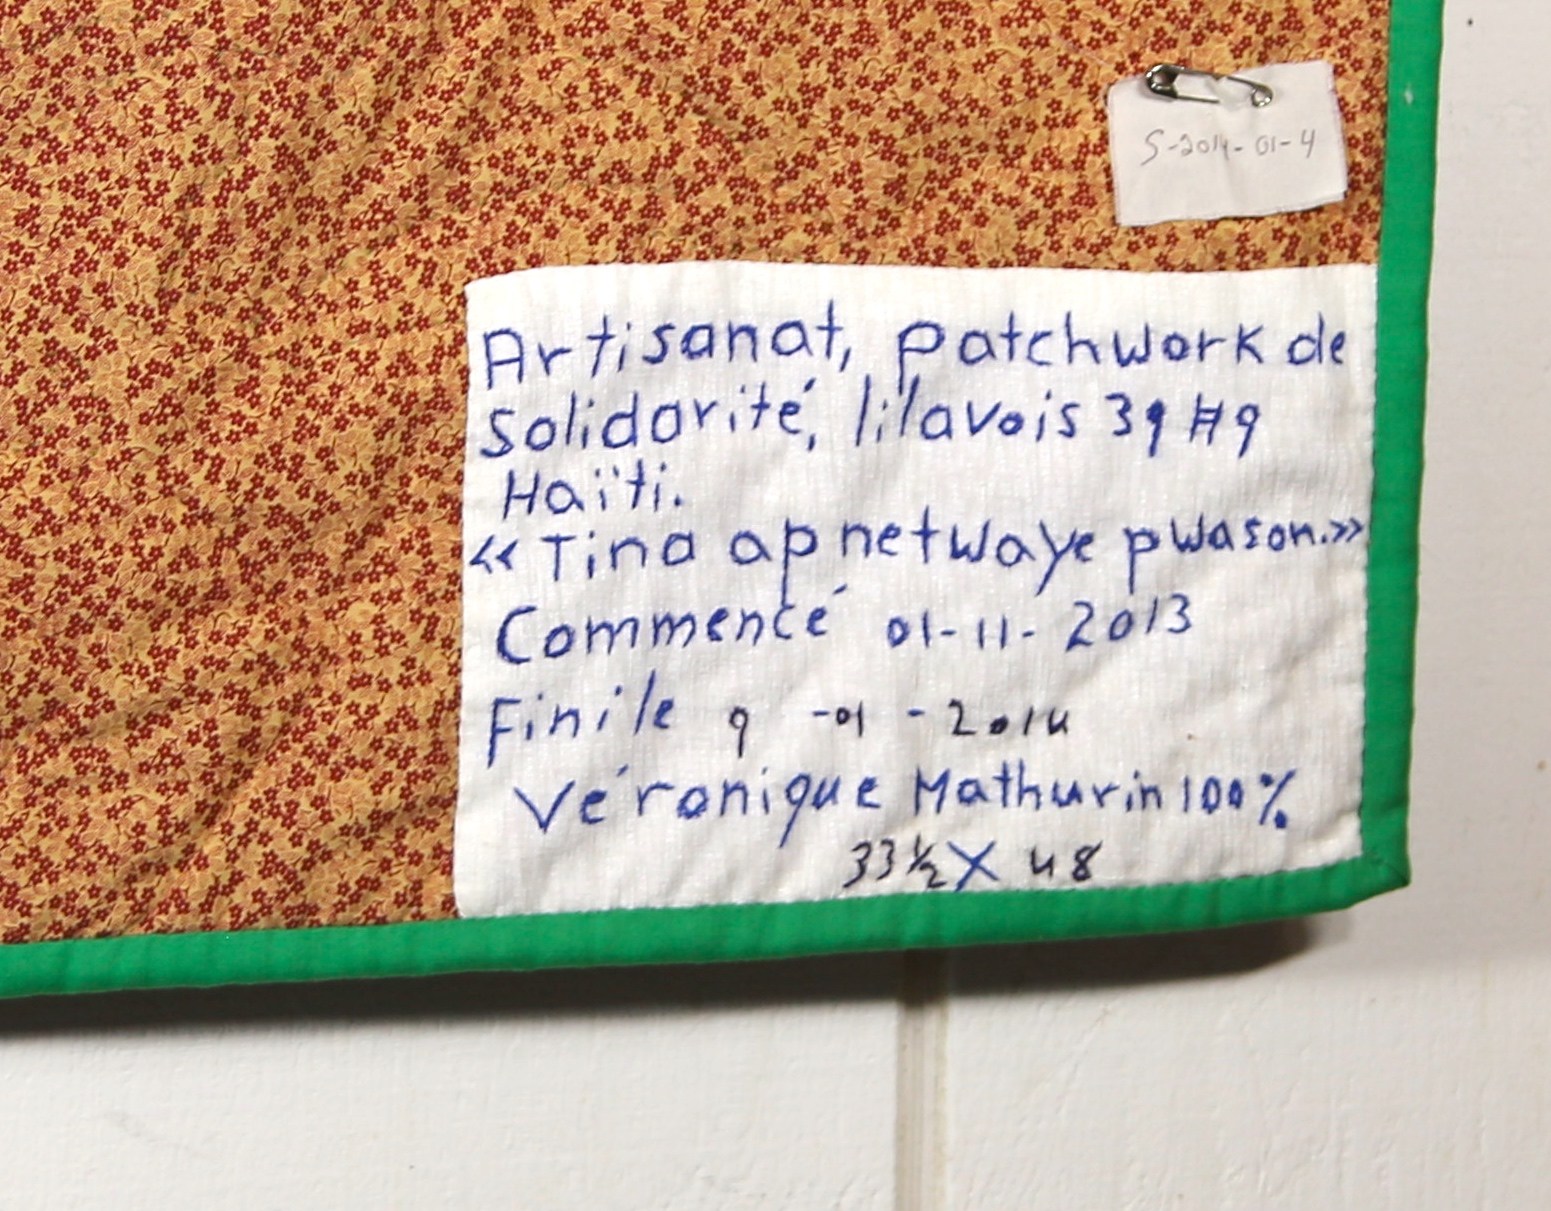 S-2014-01-4
Artisanat, patchwork de
solidarité, lilavois 39 #9
Haïti.
«Tina ap netwaye pwason.»
Commencé 01-11-2013
Fini le 9 -01 -2014
Véronique Mathurin 100%
33 ½ X 48